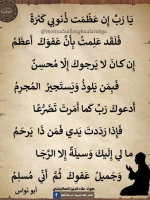 يَا رَبِّ إِن عَظُمَت ذُنُوبِي كَثرَةً
فَلَقَد عَلِمتُ بِأَنَّ عَفوَكَ أَعظَمُ
إِن كانَ لا يَرجوكَ إِلّا مُحسِنٌ
فَبِمَن يَلوذُ وَيَستَجيرُ المُجرِمُ
أَدعوكَ رَبِّ كَما أَمَرتَ تَضَرُّعًا
فَإِذا رَدَدتَ يَدي فَمَن ذا يَرحَمُ
ما لي إِلَيكَ وَسيلَةٌ إِلّا الرَجا
وَجَميلُ عَفوِكَ ثُمَّ أَنّي مُسلِمُ
أبو نواس